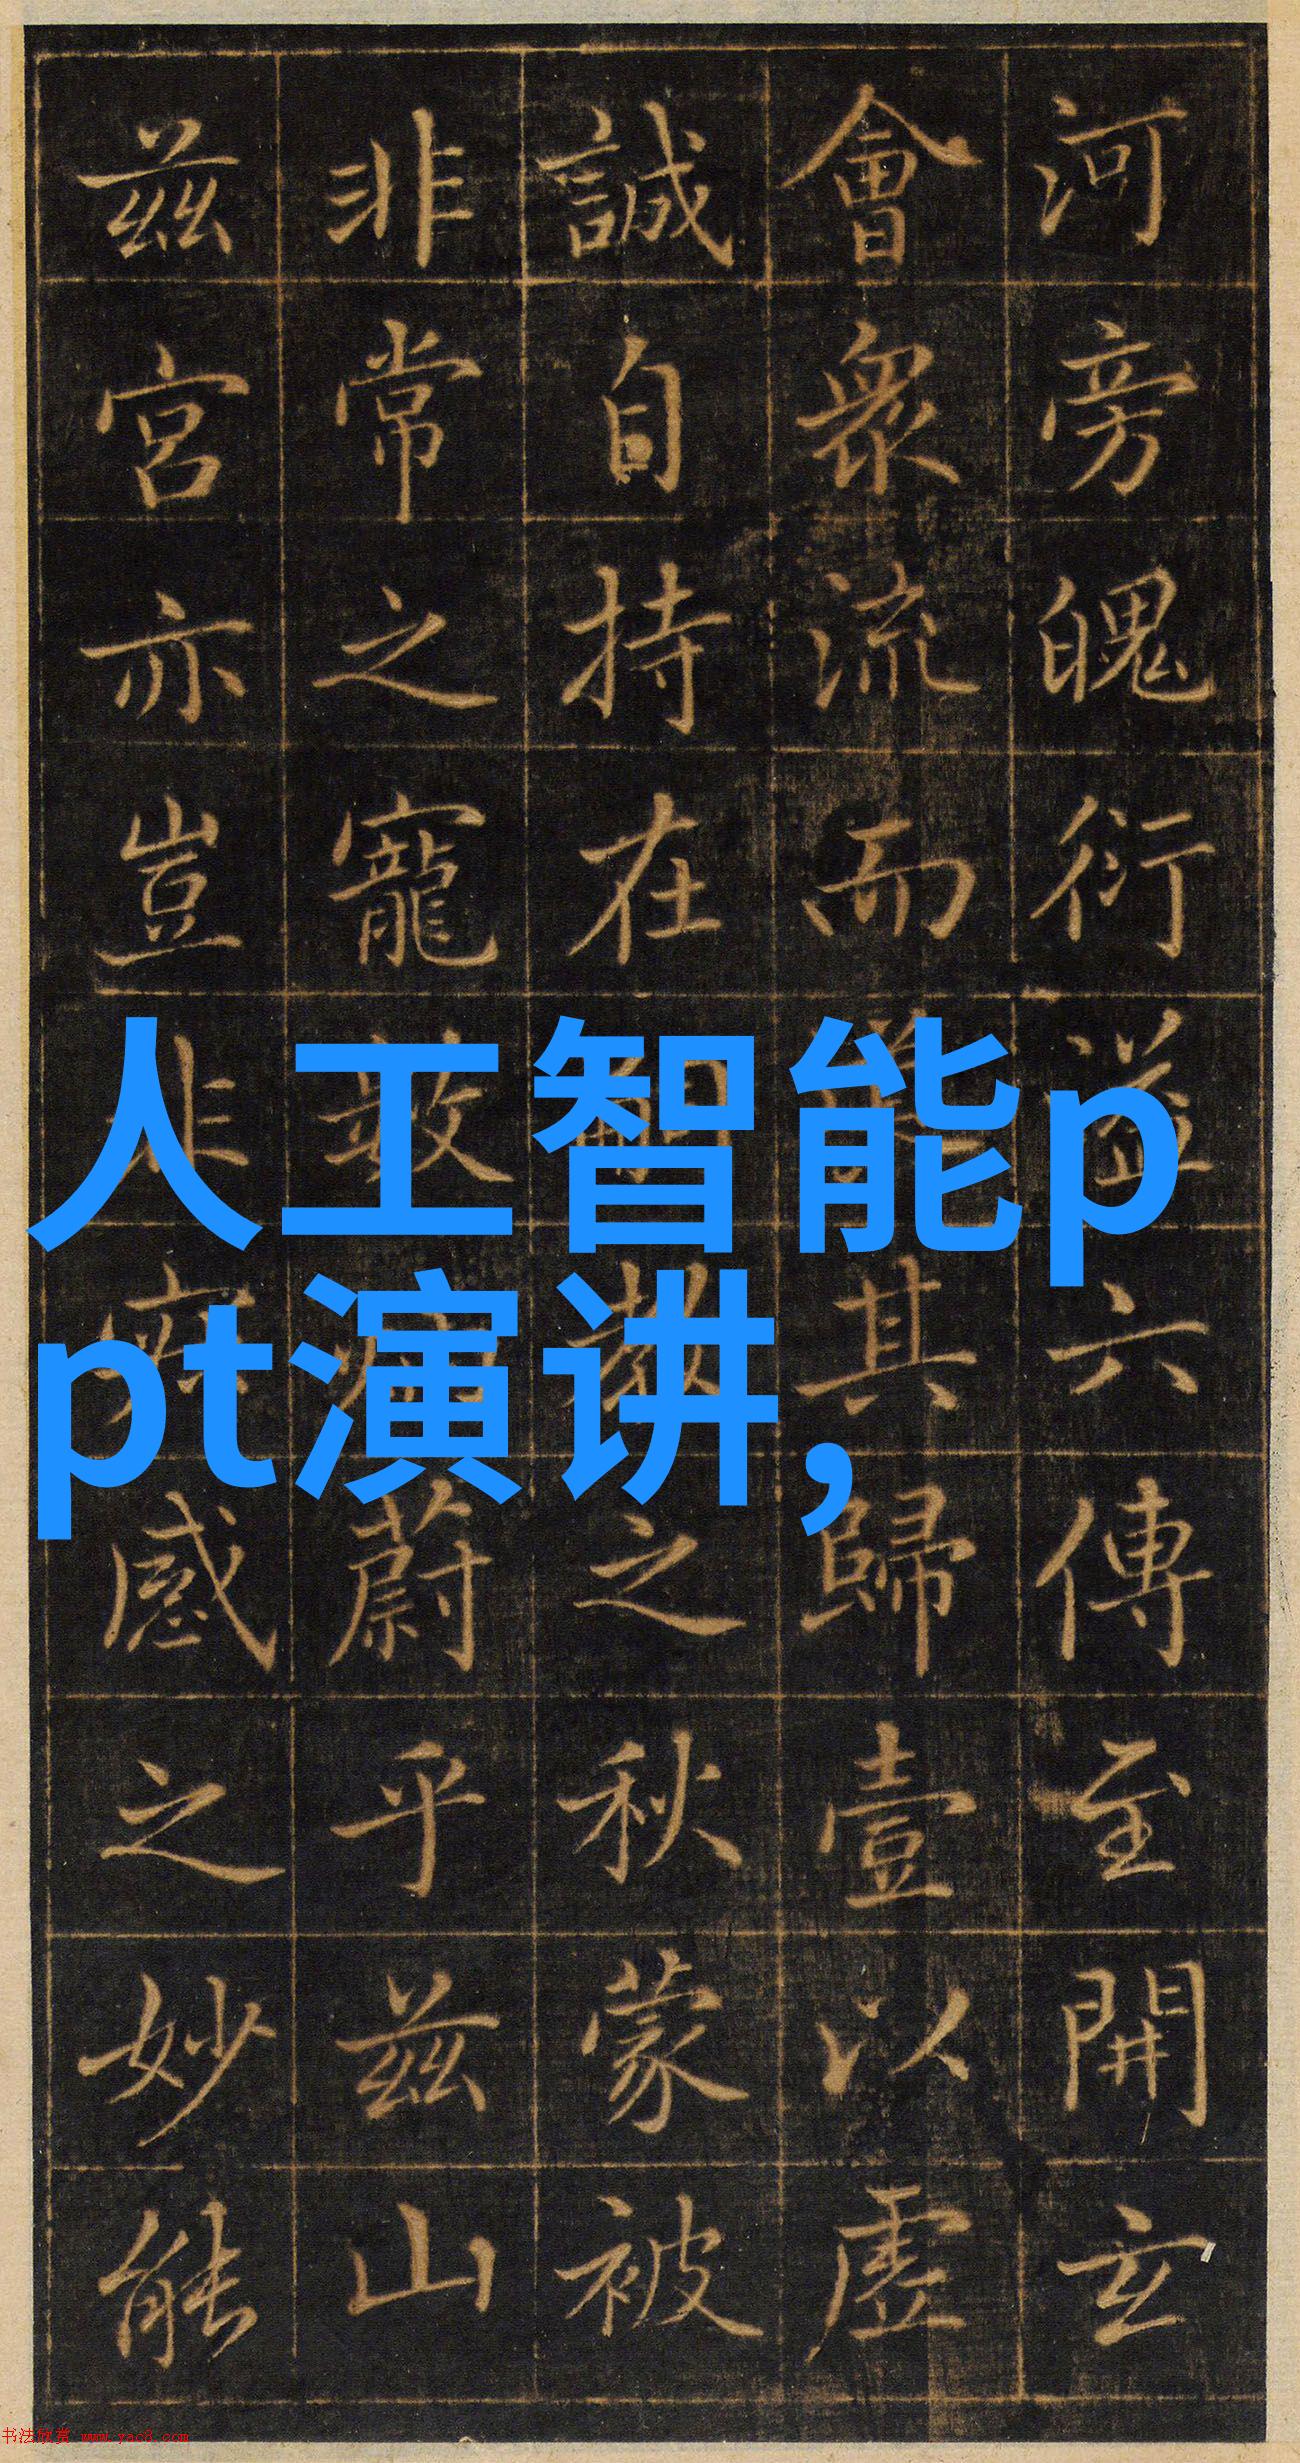 河旁魄衍溢六傳至開玄
會衆流而其歸壹以虛
誠自持在之秋蒙被
非常之寵數蔚乎茲山
茲宮亦豈非感之妙能
人工智能p
pt演讲,
书法欣赏 www.yac8.com